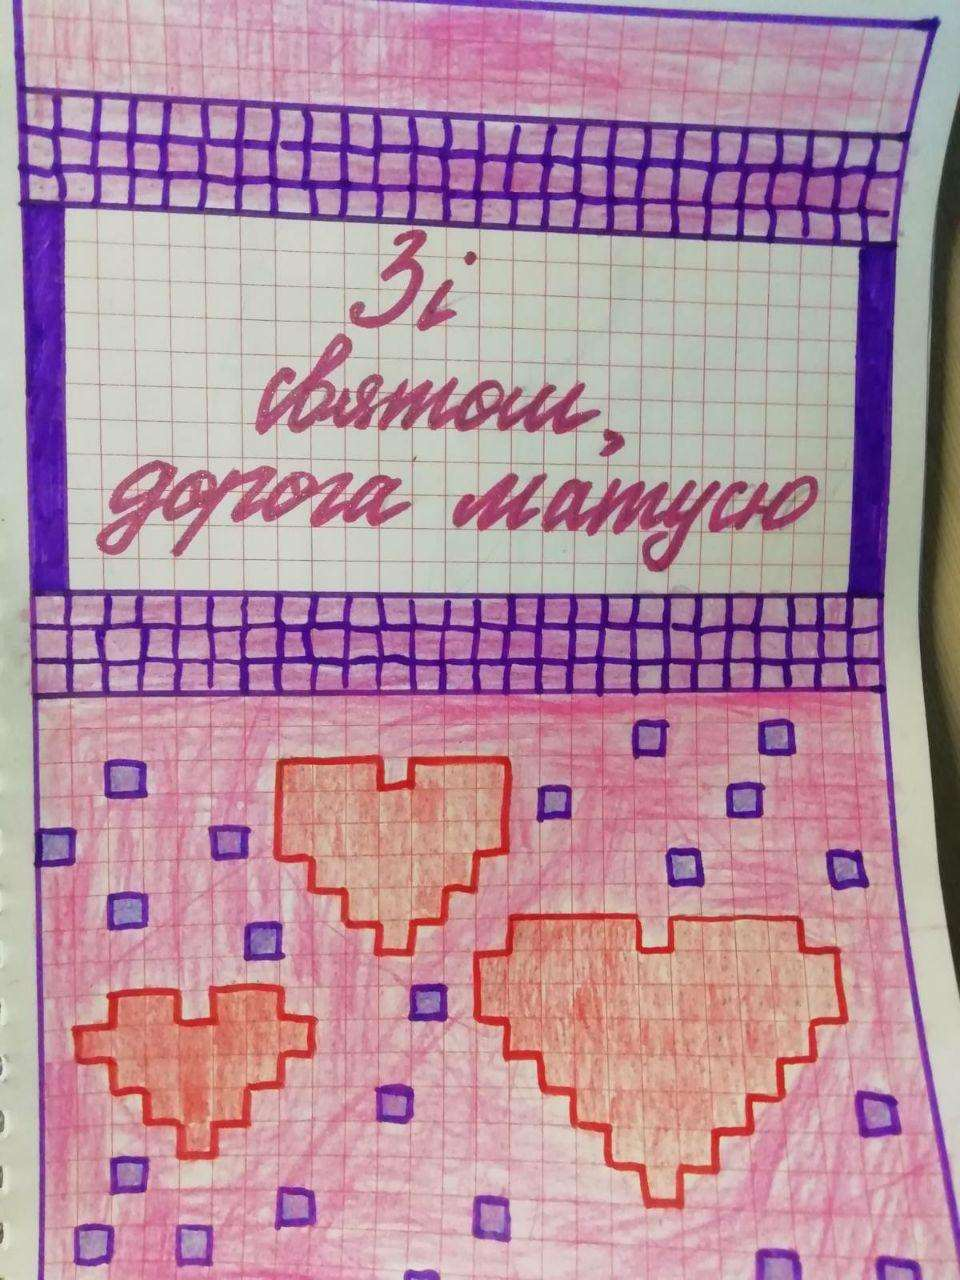 Зі
святом,
дорога матусю